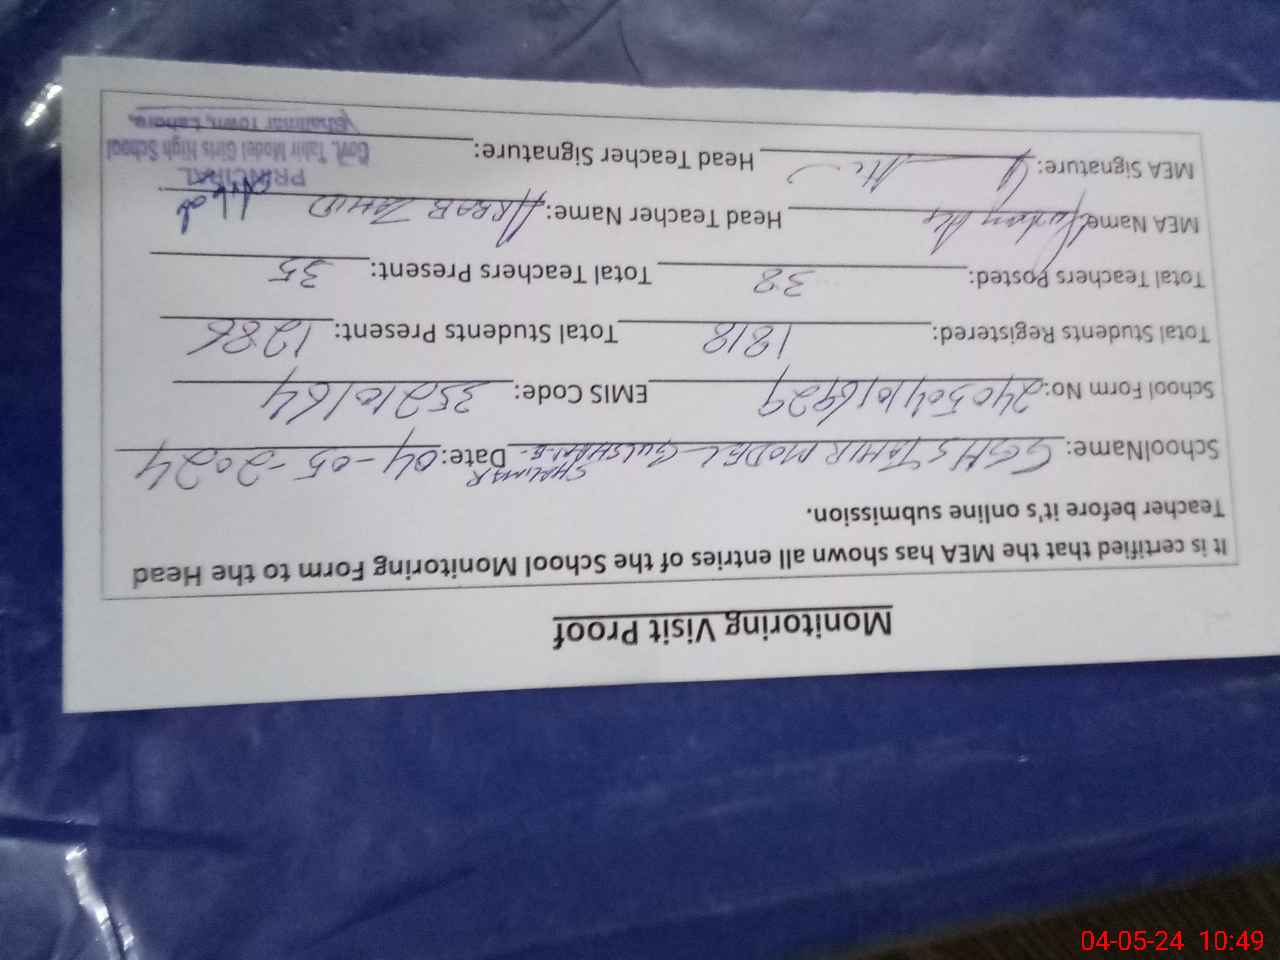 Monitoring Visit Proof
It is certified that the MEA has shown all entries of the School Monitoring Form to the Head
Teacher before it's online submission.
SchoolName: GGHS TAHIR MODEL GULSHAN-E- SHALIMAR Date: 04-05-2024
School Form No: 2405041016929 EMIS Code: 35210164
Total Students Registered: 1818 Total Students Present: 1286
Total Teachers Posted: 38 Total Teachers Present: 35
MEA Name: Ali Head Teacher Name: ARBAB ZAHID
MEA Signature: Head Teacher Signature:
PRINCIPAL
Govt. Tahir Model Girls High School
Shalimar Town, Lahore.
04-05-24 10:49